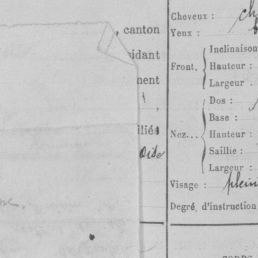 , canton
idant
ment
,
iliés
Oise
Cheveux : ch
Yeux :
Front.
Inclinaison
Hauteur :
Largeur :
Nez...
Dos :
Base :
Hauteur :
Saillie :
Largeur :
Visage : plein
Degré d'instruction